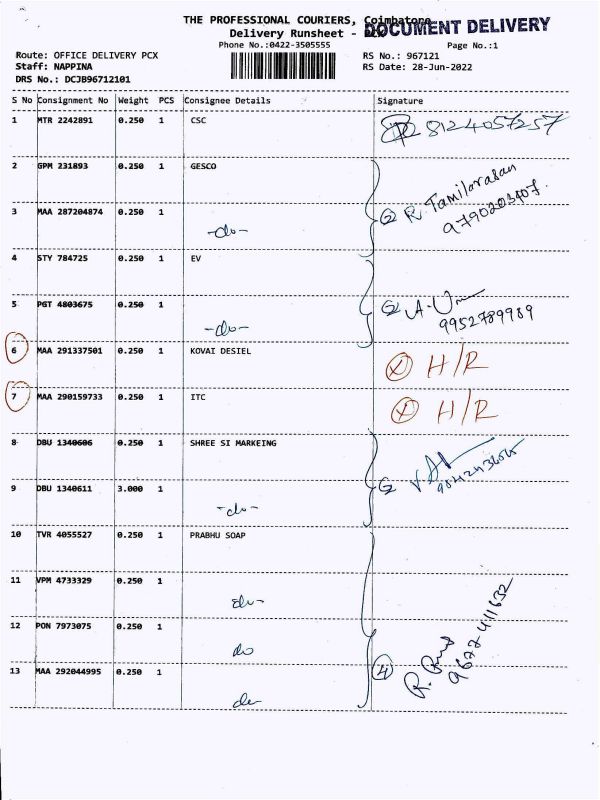 THE PROFESSIONAL COURIERS, Coimbatore
DOCUMENT DELIVERY
Delivery Runsheet -
Phone No.:0422-3505555
Page No.:1
Route: OFFICE DELIVERY PCX
RS No.: 967121
Staff: NAPPINA
RS Date: 28-Jun-2022
DRS No.: DCJB96712101
S No Consignment No Weight PCS Consignee Details Signature
1 MTR 2242891 0.250 1 CSC 8124057257
2 GPM 231893 0.250 1 GESCO
3 MAA 287204874 0.250 1 -do- 2 R. Tamilarasan
9790203407.
4 STY 784725 0.250 1 EV
5 PGT 4803675 0.250 1 -do- 2
9952789989
6 MAA 291337501 0.250 1 KOVAI DESIEL X H/R
7 MAA 290159733 0.250 1 ITC X H/R
8 DBU 1340606 0.250 1 SHREE SI MARKEING
9 DBU 1340611 3.000 1 -do- 2
10 TVR 4055527 0.250 1 PRABHU SOAP
11 VPM 4733329 0.250 1 do-
12 PON 7973075 0.250 1 do
13 MAA 292044995 0.250 1 do 4
9677411632